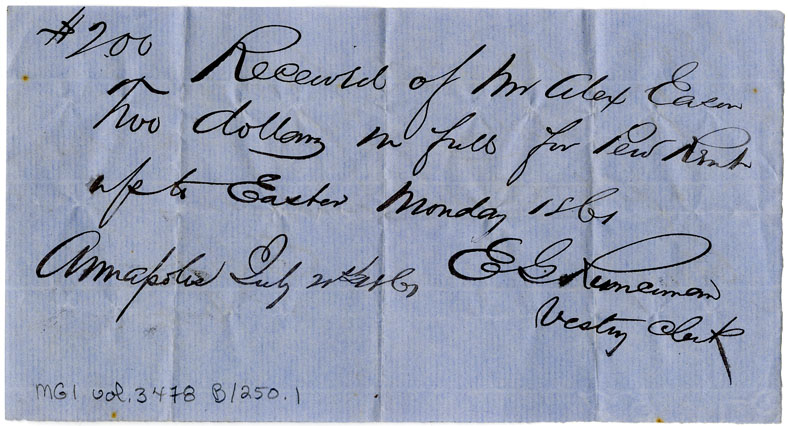 $2.00 Received of Mr Alex Eason
Two dollars in full for Pew Rent
up to Easter Monday 1861
Annapolis July 1861 E G Runciman
Vestry Clerk
MG1 vol. 3478 B/250.1